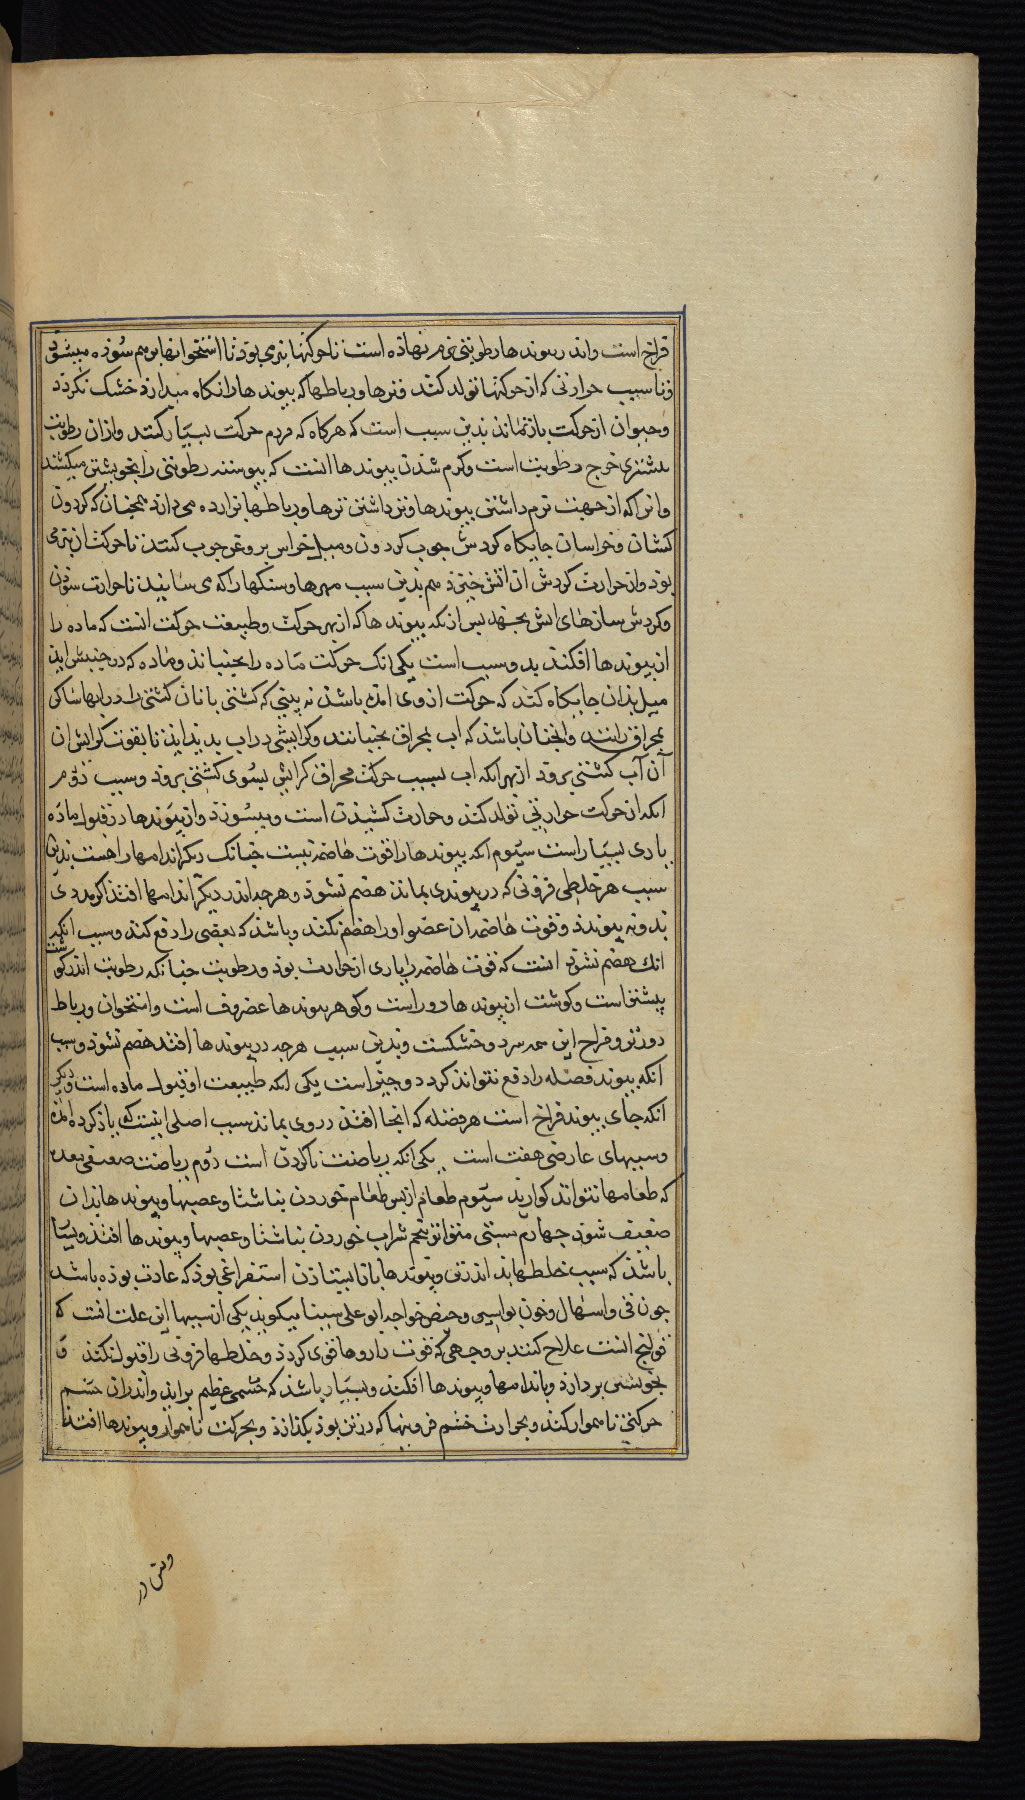 فراخ است واندر پیوندها رطوبتی نرم نهاذه است تا حرکتها بنرمی بوذ تا استخوانها برهم سوذه میشوذ
وتا سبب حرارتی که از حرکتها تولد کند وترها ورباطها که پیوندها را نکاه میدارذ خشک نکردد
وحیوان از حرکت باز نماند بدین سبب است که هرکاه که مردم حرکت بسیار کنند وازان رطوبت
بیشتری خرج رطوبت است وکرم شدن پیوندها انست که پیوسته رطوبتی را بخویشتن میکشند
وانرا که از جهت نرم داشتن پیوندها وتر داشتن ترها ورباطها ترارده می دارذ همچنان که کردون
کشان وخراسان جایکاه کردش چوب کردون ومیل خراس بروغن چرب کنند تا حرکت ان بنرمی
بوذ واز حرارت کردش ان اتش نخیزد هم بدین سبب مهرها وسنکها را که می سایند تا حرارت سوذن
وکردش سازهای اتش بجهد پس ازنکه پیوندها که از بهر حرکت وطبیعت حرکت انست که ماده را
از پیوندها افکند بدو سبب است یکی انک حرکت ماده را بجنباند وماده که در جنبش اید
میل بذان جایکاه کند که حرکت ازوی امذه باشد نه بینی که کشتی بانان کشتی را در ابهاء ساکن
بمجراف رانند وانچنان باشد که اب بمجراف بجنبانند وکرایشی در اب بدید اید تا بقوت کرایش ان
آن آب کشتی برود از بهر انکه اب بسبب حرکت مجراف کرایش بسوی کشتی برود وسبب دوم
انکه از حرکت حرارتی تولد کند وحرارت کشیدن است ومیسوزد واز پیوندها در قبول ماده
یاری بسیار است سیوم انکه پیوندها را قوت هاضمه نیست چنانک دیکر اندامها را هست بدین
سبب هر خلطی فزونی که در پیوندی بماند هضم نشوذ وهرچه اندر دیکر اندامها افتذ اکر مددی
بدو نه پیوندد وقوت هاضمه ان عضو اورا هضم نکند وباشد که بعضی را دفع کند وسبب انکه
انک هضم نشود انست که قوت هاضمه را یاری از حرارت بوذ ورطوبت چنانکه رطوبت اندر کوشت
بیشتر است وکوشت از پیوندها دور است وکوهر پیوندها غضروف است واستخوان ورباط
دوزتر وفراخ این همه سرد وخشکست وبدین سبب هرچه در پیوندها افتد هضم نشود وسبب
انکه پیوند فضله را دفع نتواند کرد دو چیز است یکی انکه طبیعت او قبول ماده است ودیکر
انکه جای پیوند فراخ است هر فضله که انجا افتذ دروی بماند سبب اصلی اینست که یاد کرده امذ
وسببهای عارضی هفت است یکی انکه ریاضت ناکردن است دوم ریاضت ضعیفی معده
که طعامها نتواند کوارید سیوم طعام از پس طعام خوردن بناشتا وعصبها وپیوندها بذان
ضعیف شوذ چهارم مستی متواتر پنجم شراب خوردن بناشتا وعصبها وپیوندها افتذ وبسیار
باشد که سبب خلطها بذ اندر تن وپیوندها باز ایستاذن استفراغی بوذ که عادت بوذه باشد
چون قی واسهال وخون بواسیر وحیض خواجه ابو علی سینا میکوید یکی از سببها این علت انست که
قولنج انست علاج کنند بر وجهی که قوت روده‌ها قوی کردد وخلطها فزونی را قبول نکند و
بخویشتن بردارد وباندامها وپیوندها افکند وبسیار باشد که خشمی عظیم براید واندران خشم
حرکتی ناهموار کند وبحرارت خشم فزونیها که در تن بوذ بکدازد وبحرکت ناهموار وپیوندها افتذ